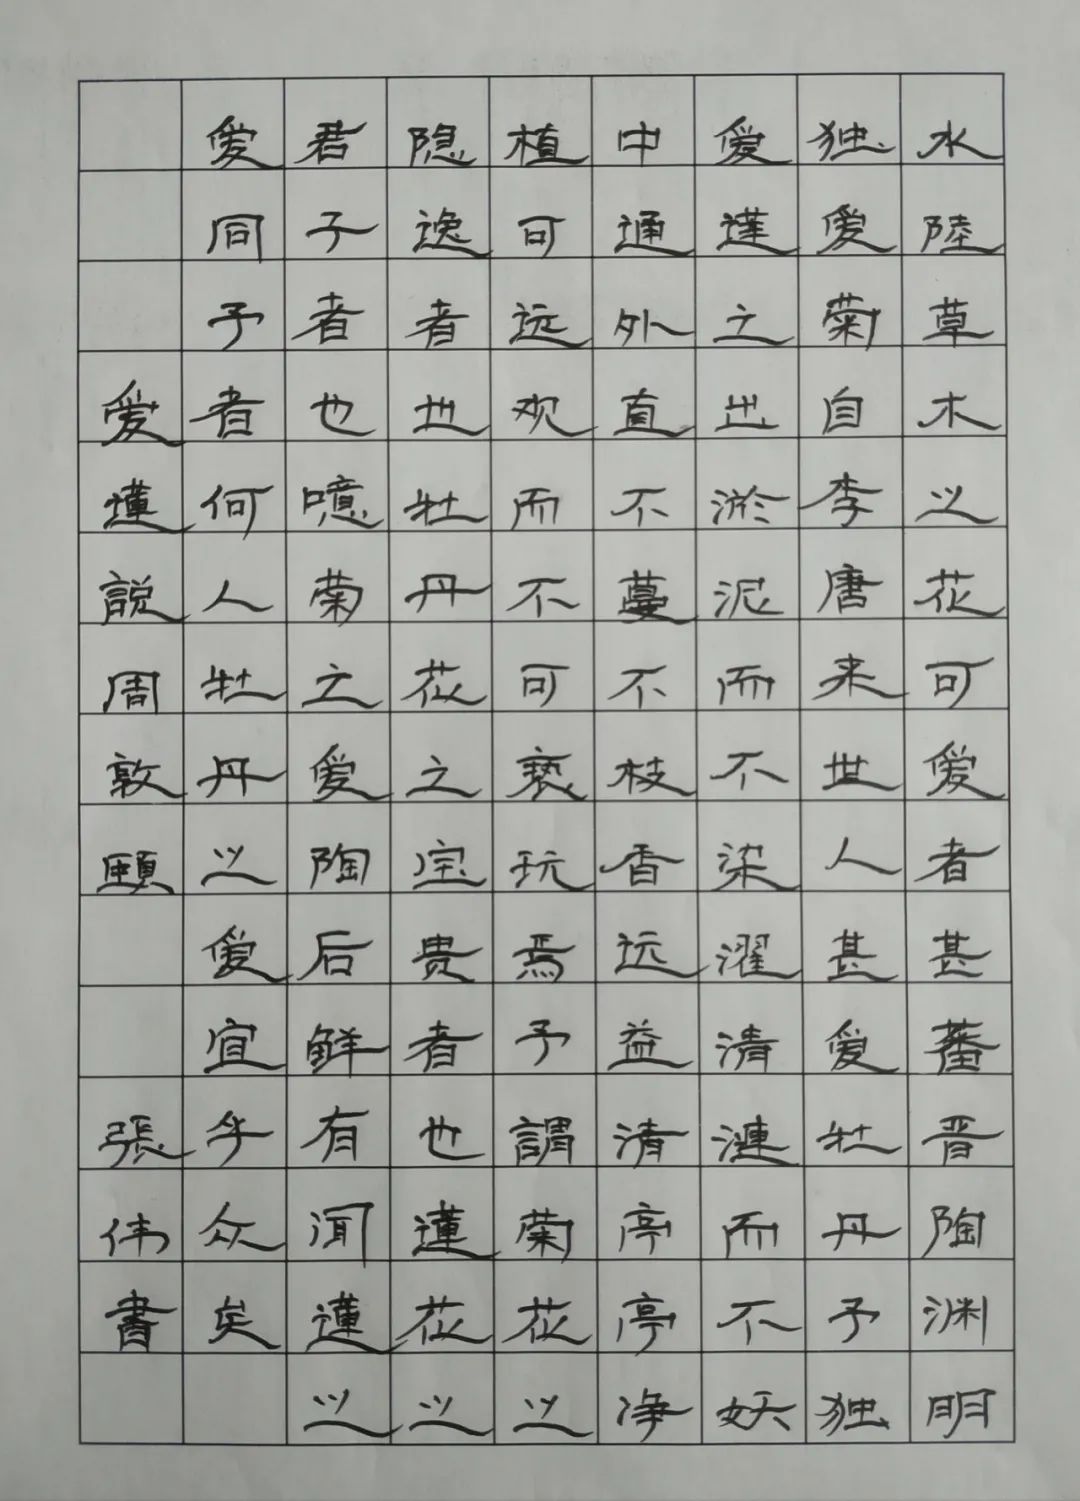 水陸草木之花可爱者甚蕃晋陶渊明
独爱菊自李唐来世人甚爱牡丹予独
爱蓮之出淤泥而不染濯清漣而不妖
中通外直不蔓不枝香远益清亭亭净
植可远观而不可亵玩焉予謂菊花之
隐逸者也牡丹花之宝贵者也蓮花之
君子者也噫菊之爱陶后鲜有闻蓮之
爱同予者何人牡丹之爱宜乎众矣
爱蓮説周敦頤張伟書